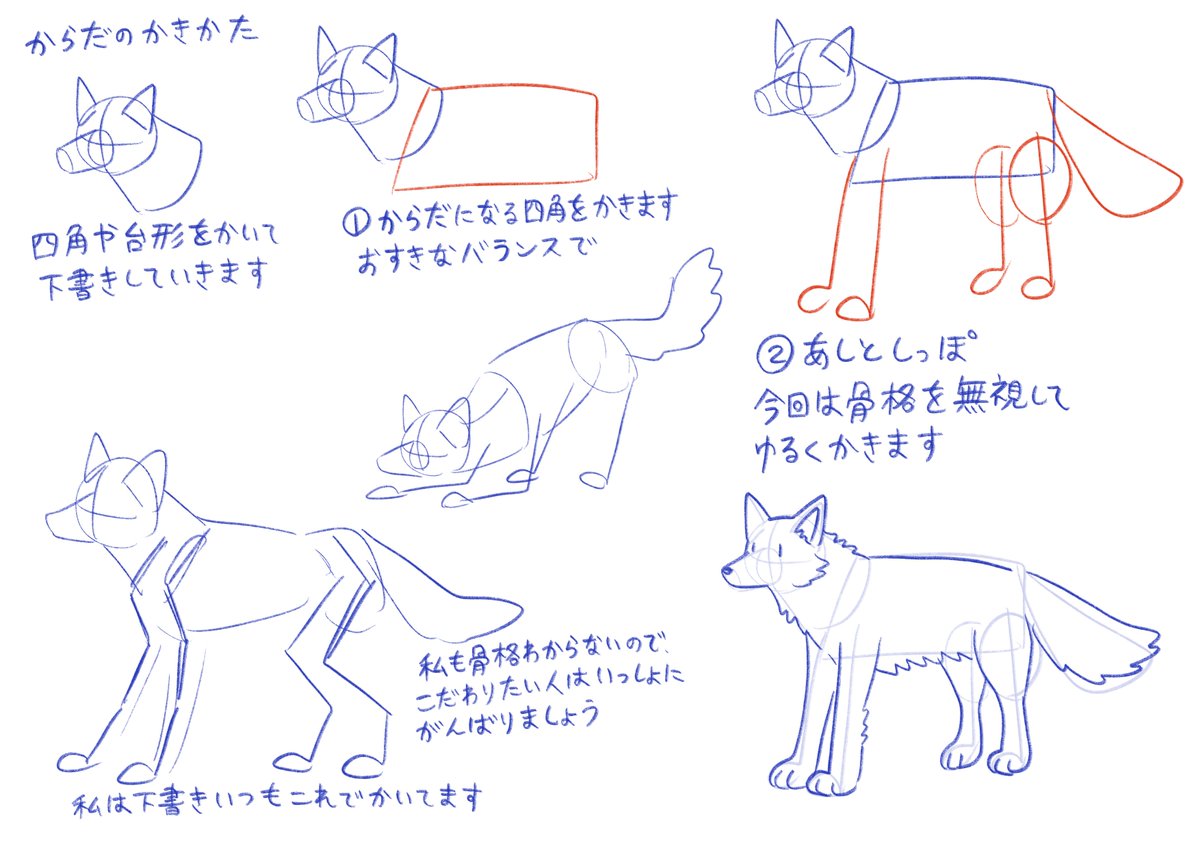 からだのかきかた
四角や台形をかいて
下書きしていきます
①からだになる四角をかきます
おすきなバランスで
②あしとしっぽ
今回は骨格を無視して
ゆるくかきます
私も骨格わからないので、
こだわりたい人はいっしょに
がんばりましょう
私は下書きいつもこれでかいてます